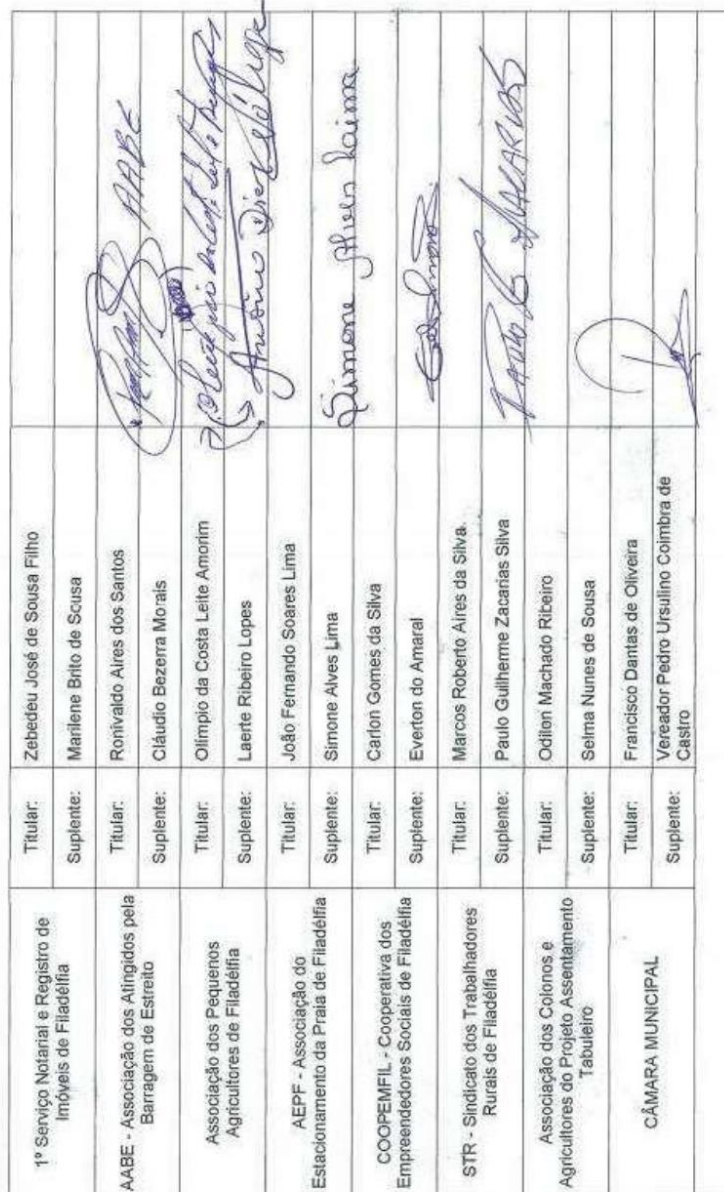 1º Serviço Notarial e Registro de
Imóveis de Filadélfia
Titular: Zebedeu José de Sousa Filho
Suplente: Marilene Brito de Sousa
AABE - Associação dos Atingidos pela
Barragem de Estreito
Titular: Ronivaldo Aires dos Santos
AABE
Suplente: Cláudio Bezerra Morais
Associação dos Pequenos
Agricultores de Filadélfia
Titular: Olímpio da Costa Leite Amorim
Suplente: Laerte Ribeiro Lopes
Antônio
AEPF - Associação do
Estacionamento da Praia de Filadélfia
Titular: João Fernando Soares Lima
Suplente: Simone Alves Lima
Simone Alves Laima
COOPEMFIL - Cooperativa dos
Empreendedores Sociais de Filadélfia
Titular: Carlon Gomes da Silva
Suplente: Everton do Amaral
STR - Sindicato dos Trabalhadores
Rurais de Filadélfia
Titular: Marcos Roberto Aires da Silva
Suplente: Paulo Guilherme Zacarias Silva
PAULO G ZACARIAS
Associação dos Colonos e
Agricultores do Projeto Assentamento
Tabuleiro
Titular: Odilon Machado Ribeiro
Suplente: Selma Nunes de Sousa
CÂMARA MUNICIPAL
Titular: Francisco Dantas de Oliveira
Suplente: Vereador Pedro Ursulino Coimbra de
Castro